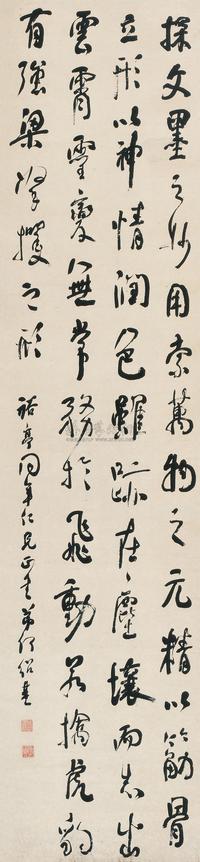 探文墨之妙用索萬物之元精以筋骨
立形以神情潤色雖跡在塵壤而志出
雲霄靈變無常務於飛動若擒虎豹
有強梁拏攫之形
同年仁兄正 弟何紹基